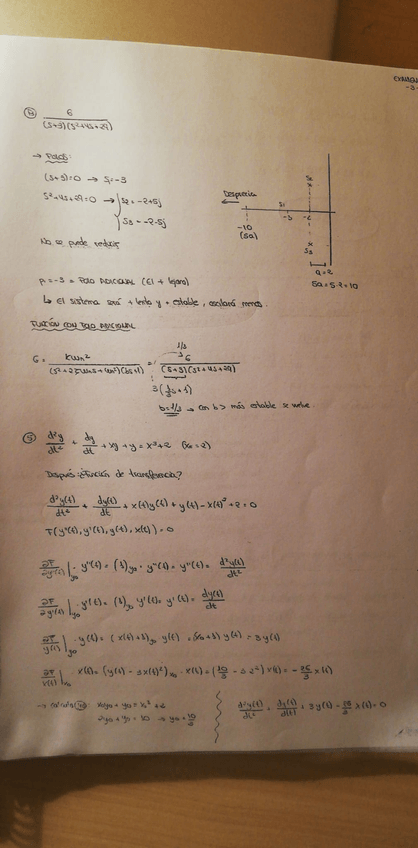 EXAMEN
-3-
b) 6 / (s+3)(s²+4s+29)
→ POLOS:
(s+3)=0 → s₁=-3
s²+4s+29=0 → { s₂=-2+5j
s₃=-2-5j
No se puede reducir
Desprecia
←
s₂
x
s₁
-10
-3
-2
(5a)
x
s₃
a=2
5a=5·2=10
p=-3 = POLO ADICIONAL (El + lejano)
↳ El sistema será + lento y + estable, oscilará menos.
FUNCIÓN CON POLO ADICIONAL
G = kωn² / (s²+2ξωns+ωn²)(bs+1) = 1/3 · 6 / (s+3)(s²+4s+29)
3(1/3 s+1)
b=1/3 → con b> más estable se vuelve
5) d²y/dt² + dy/dt + xy+y=x³+2 (x₀=2)
Después ¿Función de transferencia?
d²y(t)/dt² + dy(t)/dt + x(t)y(t)+y(t)-x(t)³+2=0
F(y''(t), y'(t), y(t), x(t))=0
∂F/∂y''(t)|y₀ · y''(t) = (1)y₀ · y''(t) = y''(t) = d²y(t)/dt²
∂F/∂y'(t)|y₀ · y'(t) = (1)y₀ y'(t) = y'(t) = dy(t)/dt
∂F/y(t)|y₀ · y(t) = (x(t)+1)y₀ y(t) = (x₀+1) y(t) = 3y(t)
∂F/x(t)|x₀ · x(t) = (y(t)-3x(t)²)x₀ · x(t) = (10/3 - 3·2²) x(t) = -26/3 x(t)
→ calculo y₀: x₀y₀+y₀=x₀³+2
2y₀+y₀=10 → y₀=10/3
d²y(t)/dt² + dy(t)/d(t) + 3y(t) - 26/3 x(t)=0